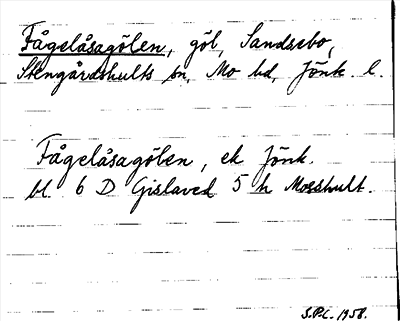 Fågelåsagölen, göl, Sandsebo,
Stengårdshults sn, Mo hd, Jönk. l.
Fågelåsagölen, ek Jönk.
bl. 6 D Gislaved 5 h Mosshult.
S.P.L. 1958.